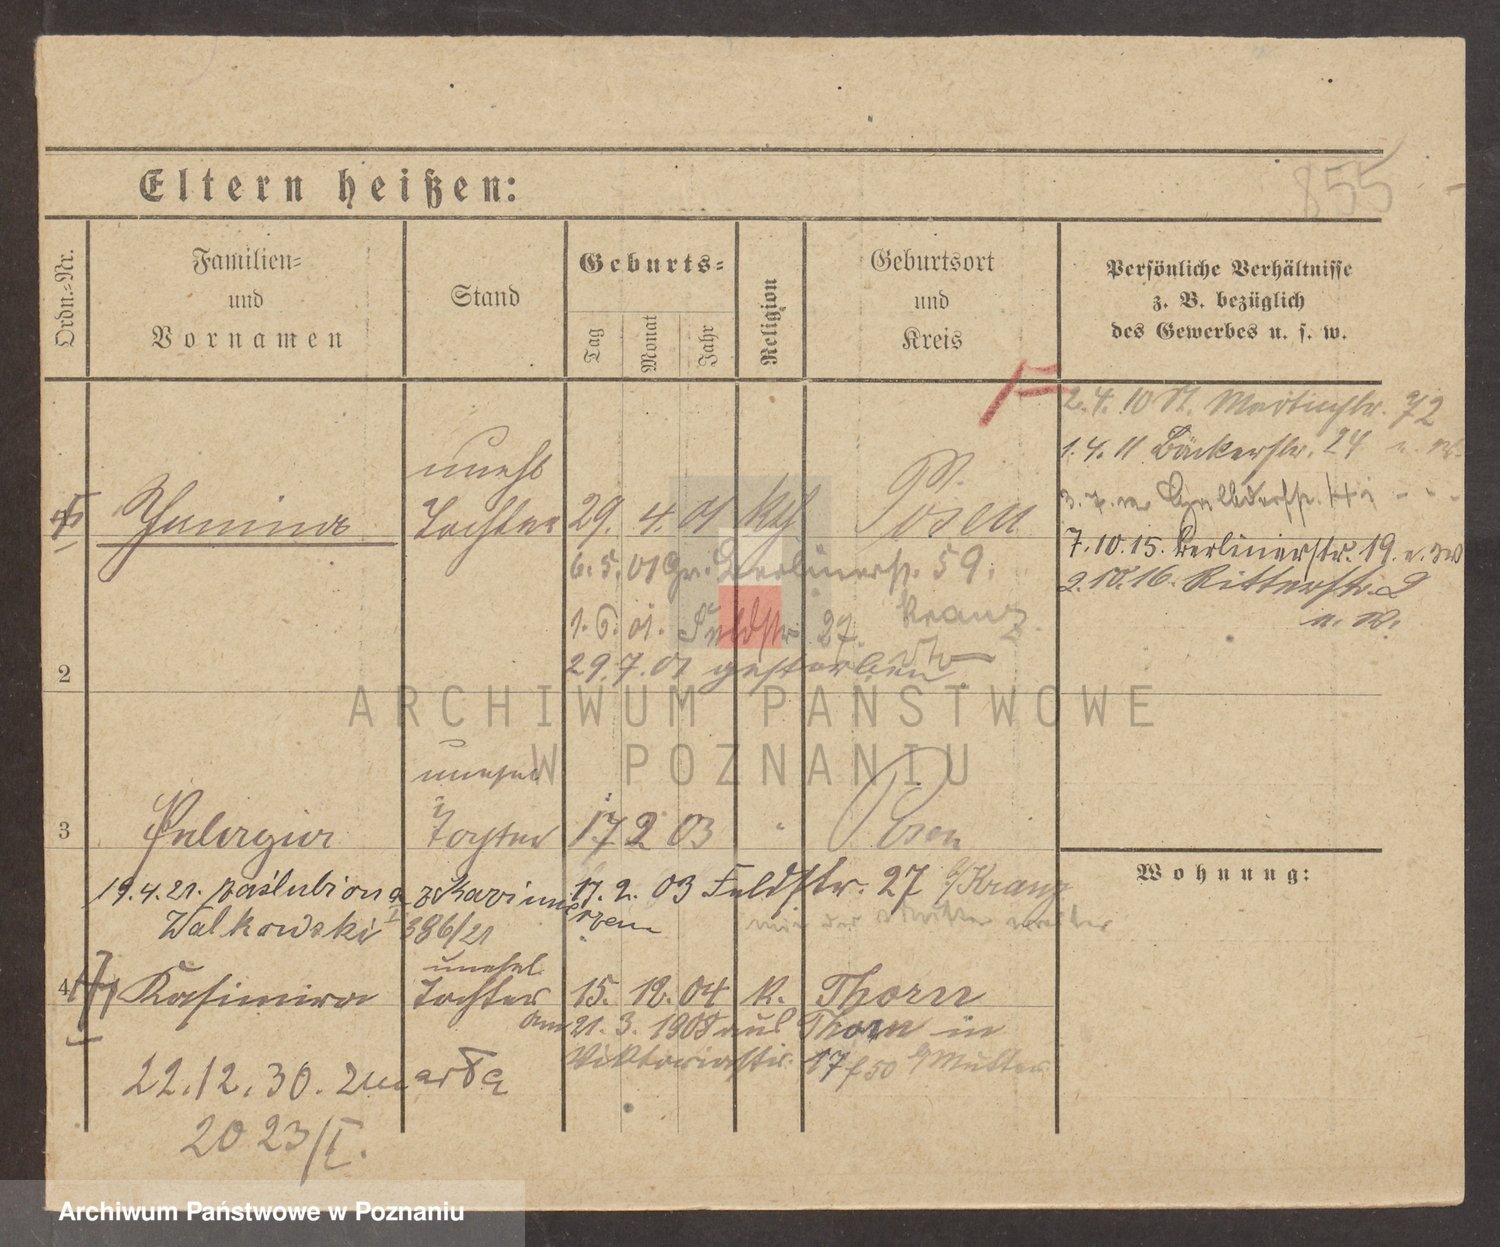 855
Eltern heißen:
Ordn.-Nr.
Familien-
und
Vornamen
Stand
Geburts-
Tag
Monat
Jahr
Religion
Geburtsort
und
Kreis
Persönliche Verhältnisse
z. B. bezüglich
des Gewerbes u. s. w.
2.4.10 St. Martinstr. 72
1.4.11 Bäckerstr. 24
7.10.15. Berlinerstr. 19.
2.10.16. Ritterstr. 2
unehl
Janina Tochter 29. 4. 01 kth Posen
6.5.01 Gr. Berlinerstr. 59.
1.6.01. Feldstr. 27. Kranz
29.7.01 gestorben
2
unehel
3 Pelagia Tochter 17 2 03 " Posen
19.4.21. zaślubiona z Kazimierzem 17.2.03 Feldstr. 27 b/Kranz
Walkowski 386/21
unehel.
4 Kasimira Tochter 15. 12. 04 k. Thorn
am 21.3.1908 aus Thorn in
Viktoriastr. 17 b/Mutter
22.12.30. zmarła
2023/I.
Wohnung:
ARCHIWUM PAŃSTWOWE
W POZNANIU
Archiwum Państwowe w Poznaniu